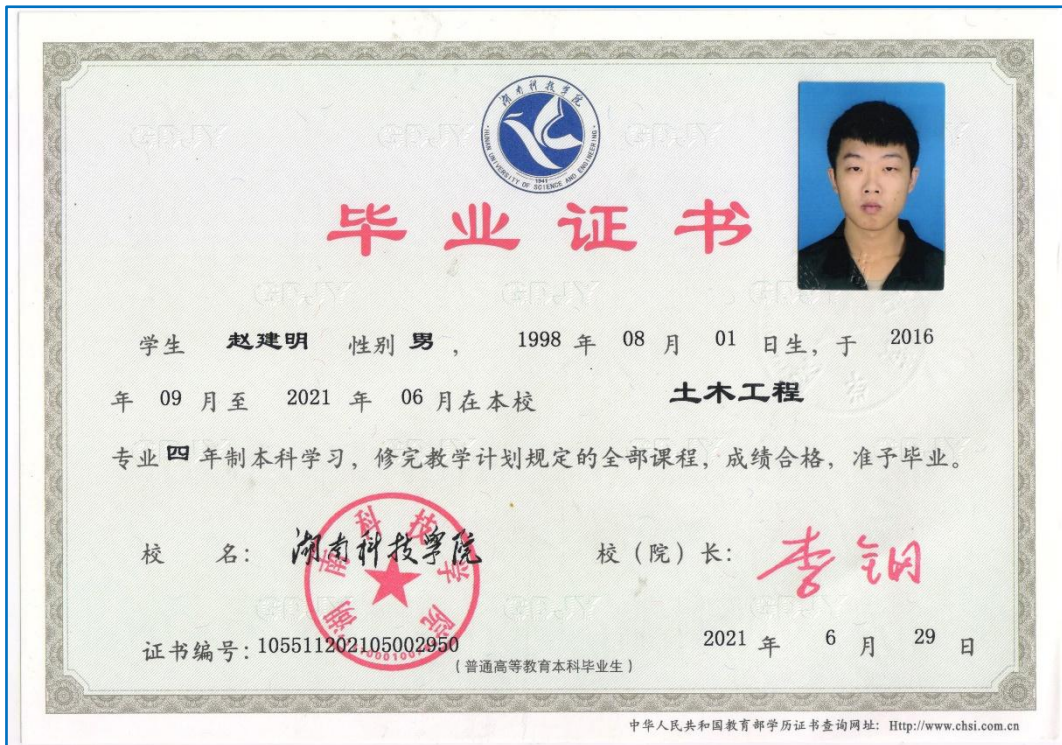 湖南科技学院
HUNAN UNIVERSITY OF SCIENCE AND ENGINEERING
1941
毕业证书
学生 赵建明 性别 男, 1998 年 08 月 01 日生, 于 2016
年 09 月至 2021 年 06 月在本校 土木工程
专业 四 年制本科学习, 修完教学计划规定的全部课程, 成绩合格, 准予毕业。
校 名: 湖南科技学院 校(院)长:
湖南科技学院
证书编号: 105511202105002950 2021 年 6 月 29 日
(普通高等教育本科毕业生)
中华人民共和国教育部学历证书查询网址: Http://www.chsi.com.cn